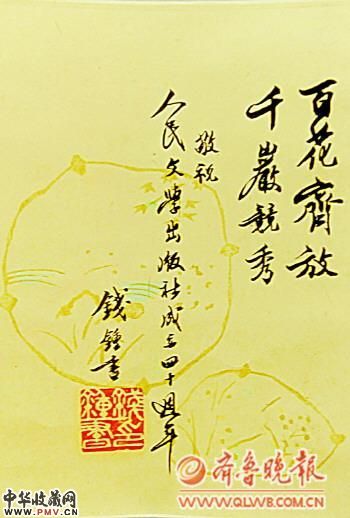 百花齊放
千巖競秀
敬祝
人民文學出版社成立四十週年
錢鍾書
錢鍾書印
齐鲁晚报
WWW.QLWB.COM.CN
中华收藏网
www.PMV.CN